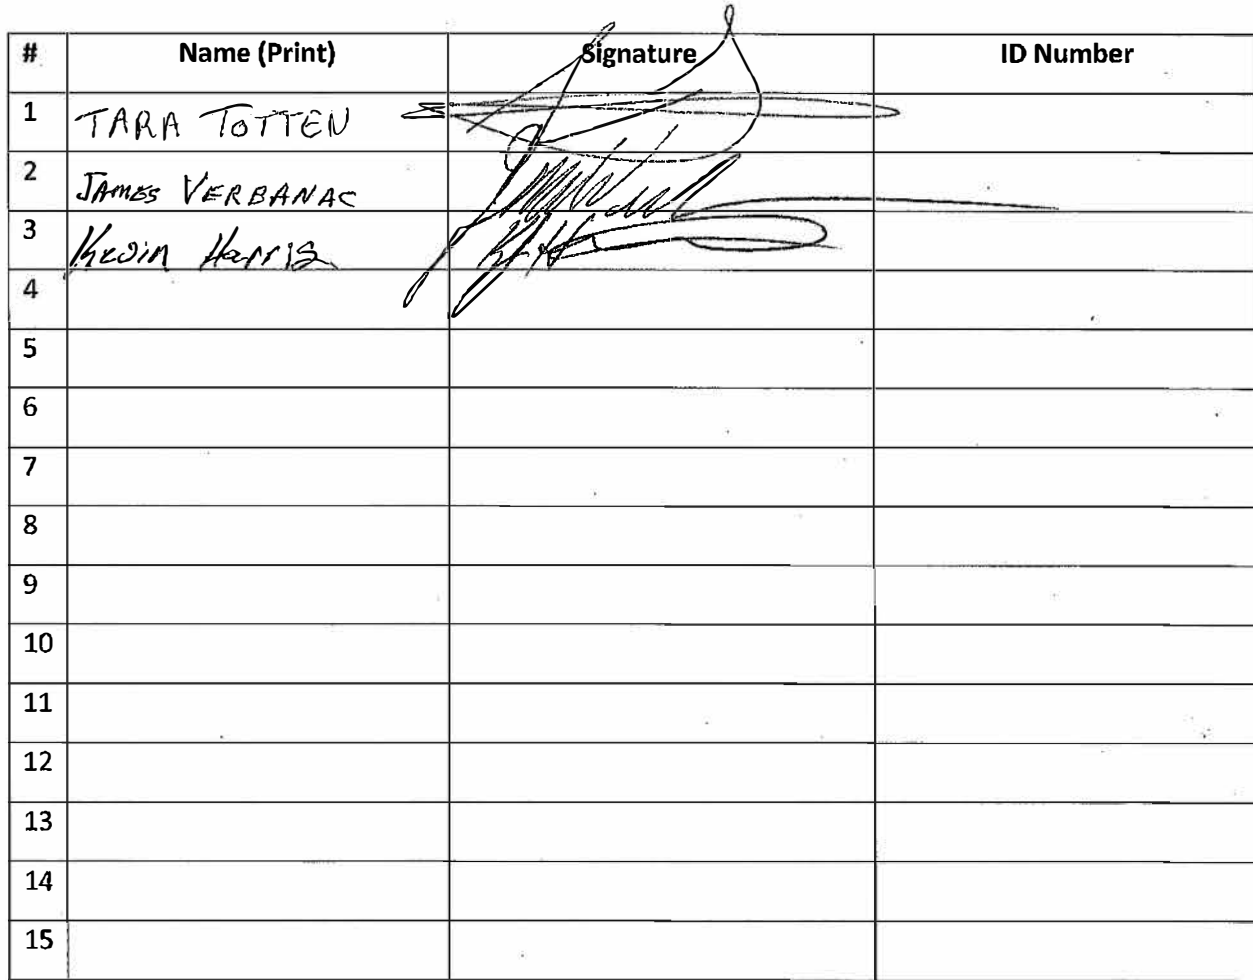 # Name (Print) Signature ID Number
1 TARA TOTTEN
2 JAMES VERBANAC
3 Kevin Harris
4
5
6
7
8
9
10
11
12
13
14
15